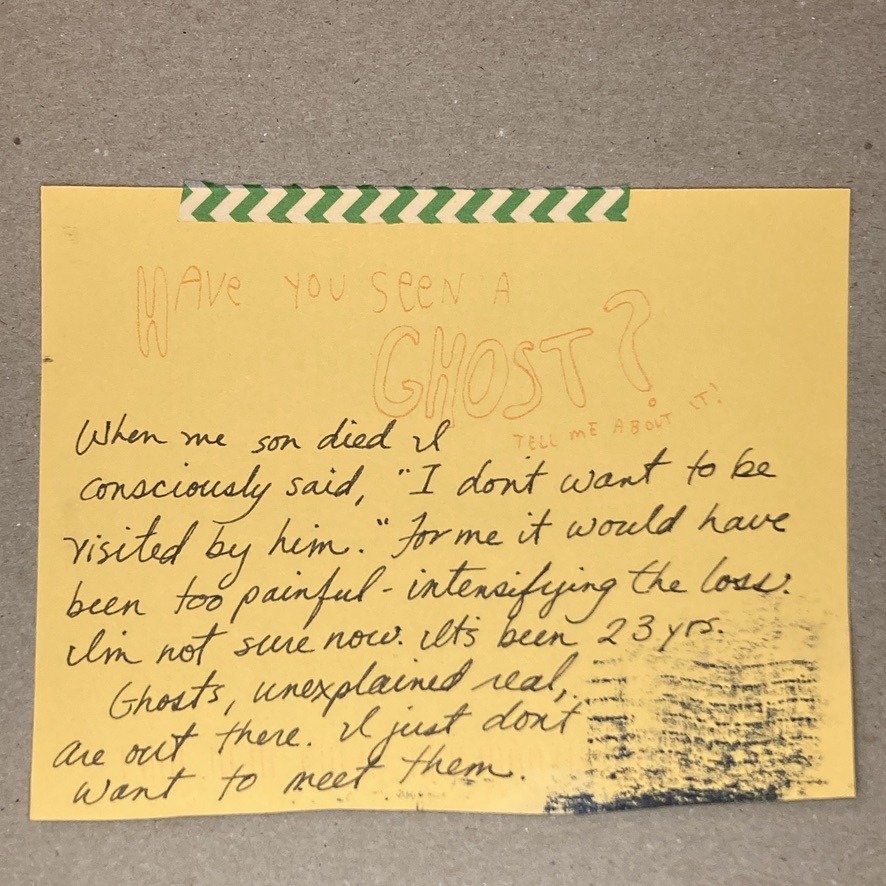 HAVE YOU SEEN A
GHOST?
TELL ME ABOUT IT!
When me son died I
consciously said, "I don't want to be
visited by him." For me it would have
been too painful - intensifying the loss.
I'm not sure now. It's been 23 yrs.
Ghosts, unexplained real,
are out there. I just don't
want to meet them.